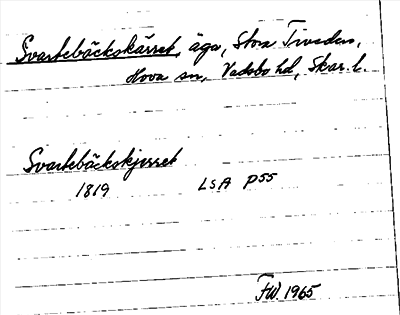 Svartebäckskärret, äga, Stora Tiveden,
Hova sn, Vadsbo hd, Skar. l.
Svartebäckskjerret
1819 LSA P55
FW. 1965